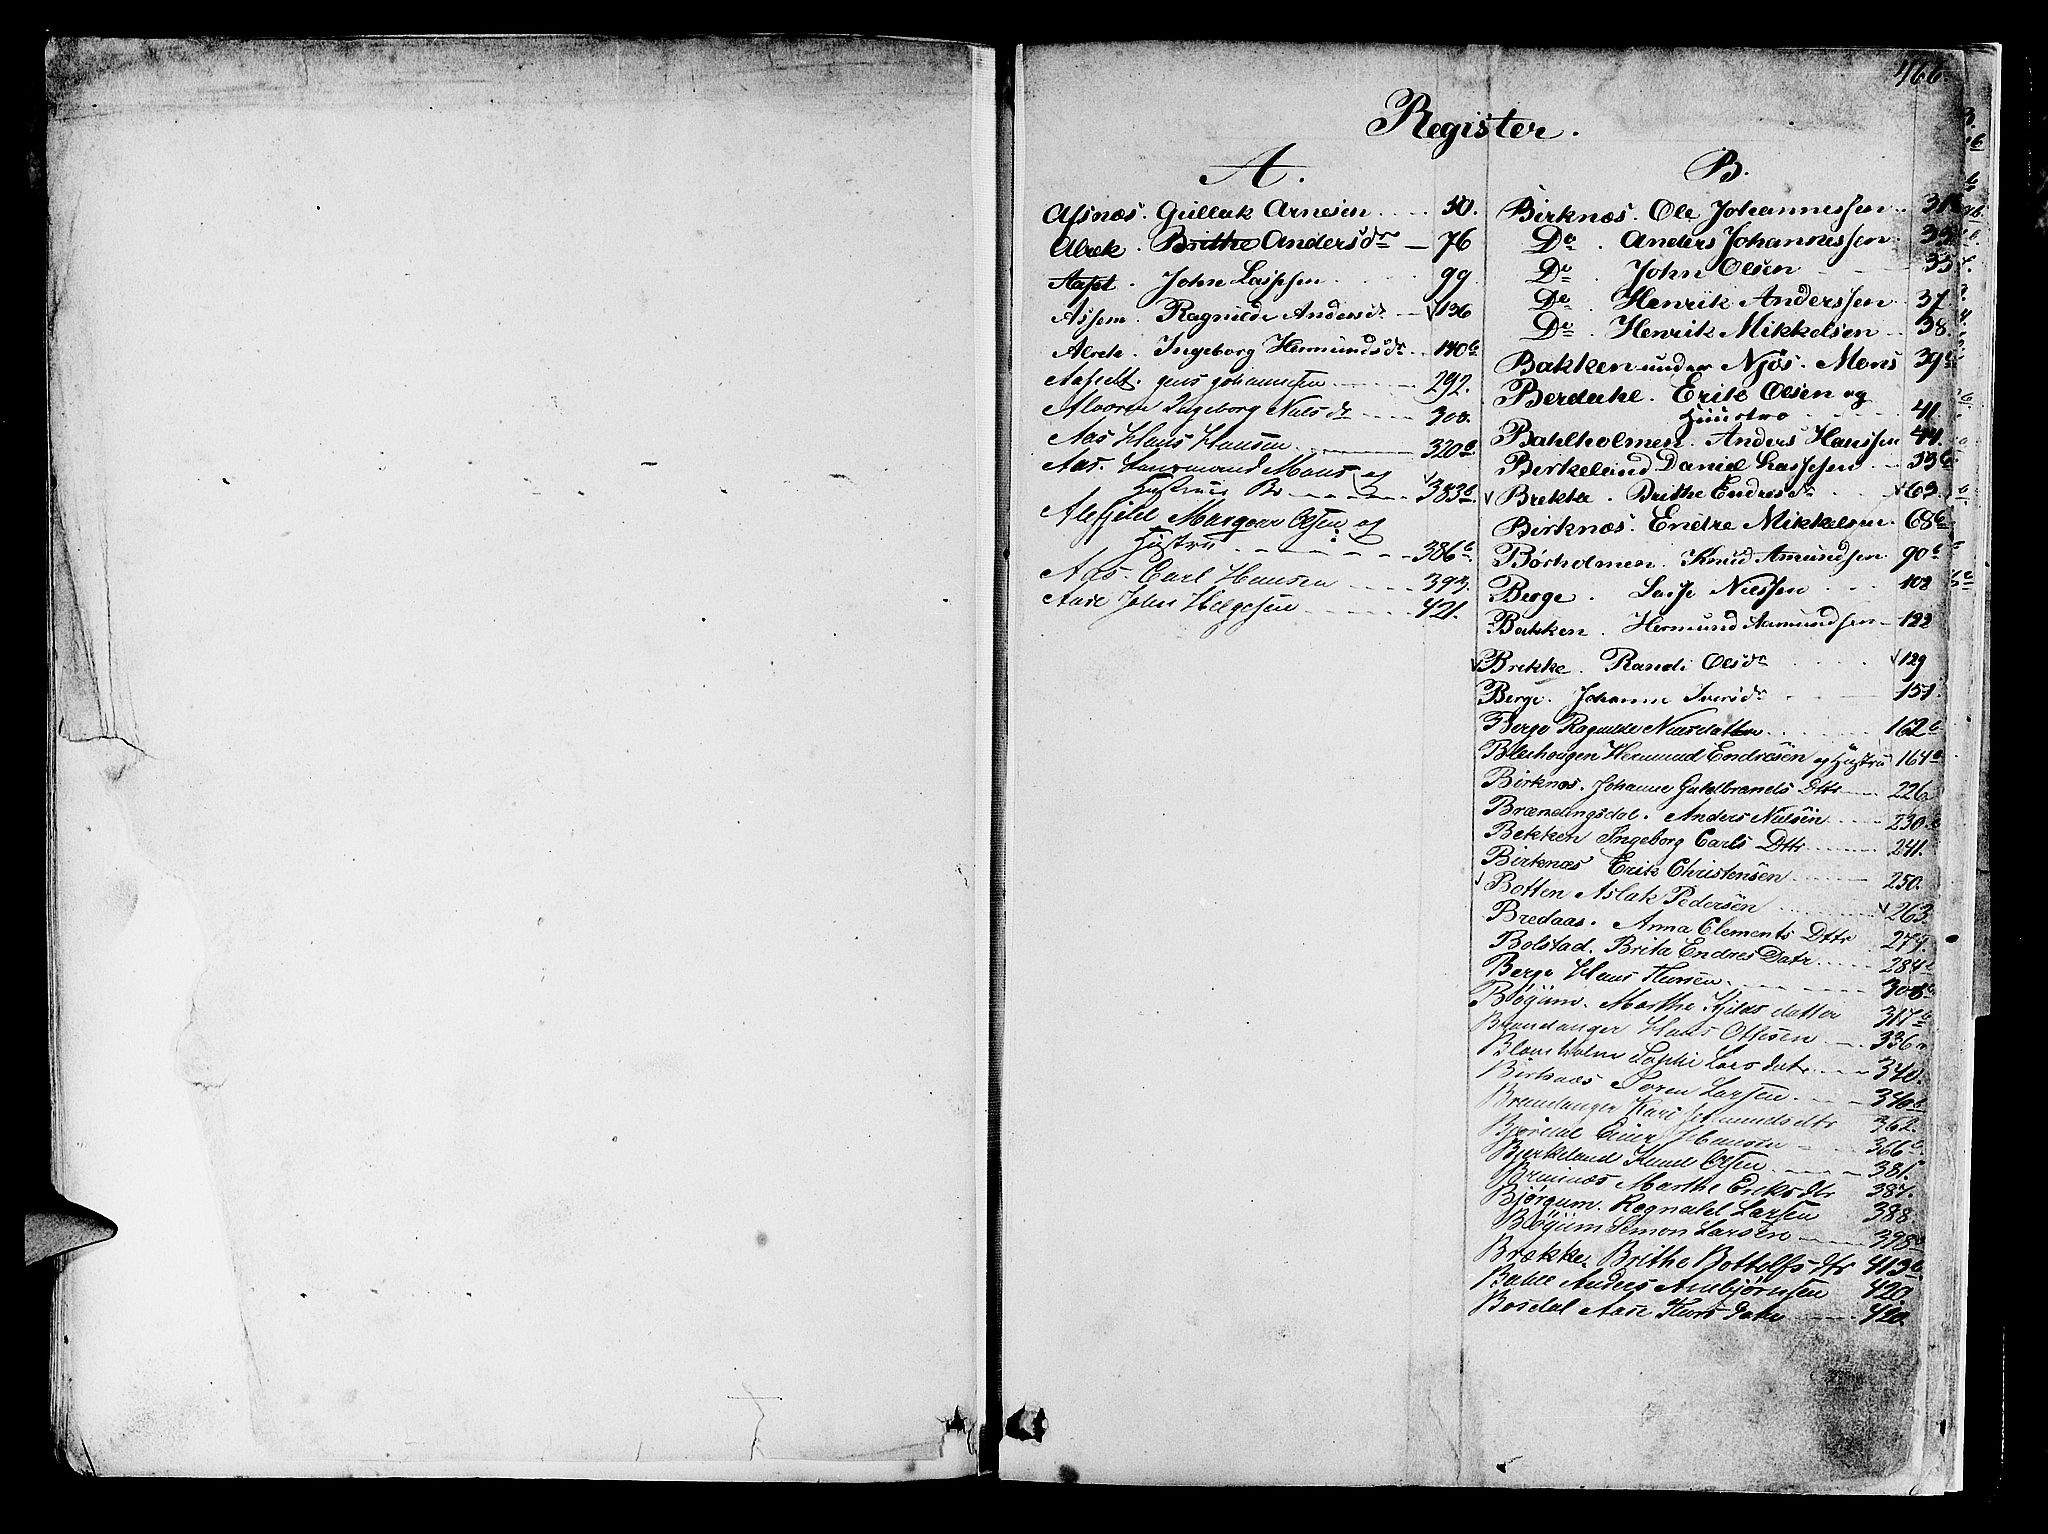 466.
Register.
A.
Afsnæs. Gullak Arnesen 50.
Alrek. Brithe Andersdr 76
Aafet. John Lassesen 99
Assem. Ragnilde Andersdr 136
Alrek. Ingeborg Hermundsdr 140b
Aafedt. Jens Johannesen 292.
Alvoren Ingeborg Nielsdr 300.
Aas Hans Hansen 320b
Aas. Mons og
Hustrues Bo 383b
Alefjeld Margoer Olsen og
Hustru 386b
Aas. Carl Hansen 393.
Aare John Helgesen 421.
B.
Birknæs. Ole Johannessen
Do. Anders Johannessen 33
Do. John Olsen 35
Do. Henrik Anderssen 37.
Do. Henrik Mikkelsen 38.
Bakken under Njøs. Mons 39b
Berdahl. Erik Olsen og
Huustro 41.
Bahlholmen. Anders Hanssen 44.
Birkeland Daniel Lassesen 53b
Brekke. Brithe Endresdr 63.
Birknæs. Endre Mikkelsen. 68b
Børholmen. Knud Amundsen 90b
Berge. Lasse Nielssen 102
Bakken. Hermund Aamundsen 122
Brekke. Randi Olsdr 129
Berge. Johanne Iversdr 151.
Berge Ragnilde Nielsdatter 162b
Hermund Endresen og Hustru 164b
Birknæs. Johanne Guldbrands Dttr 226
Brændingsdal. Anders Nielsen 230
Bekken Ingeborg Carls Dttr 241.
Birknæs Erik Christensen 250.
Botten Aslak Pedersen 263.
Bredaas. Anna Clements Dttr 274.
Bolstad. Brita Endres Datr 284b
Berge Hans Thuesen 308b
Bøgum. Marthe Kjelds datter 317b
Brandanger Hans Ottesen 336
Blaaeholm Sophi Lars datr 340.
Birknæs Søren Larsen 346b
Brandanger Kari Amundsdtr 362.
Einer Hansen 366b
Bjerkeland Knud Olsen 381.
Brimnæs Marthe Eriksdtr 387.
Bjørgum. Ragnald Larsen 388
Bøgum Simon Larsen 398
Brække. Brithe Bottolfs dtr 413b
Bahle Anders Andbjørnsen 420.
Bosdal Aase Thues datr 420.